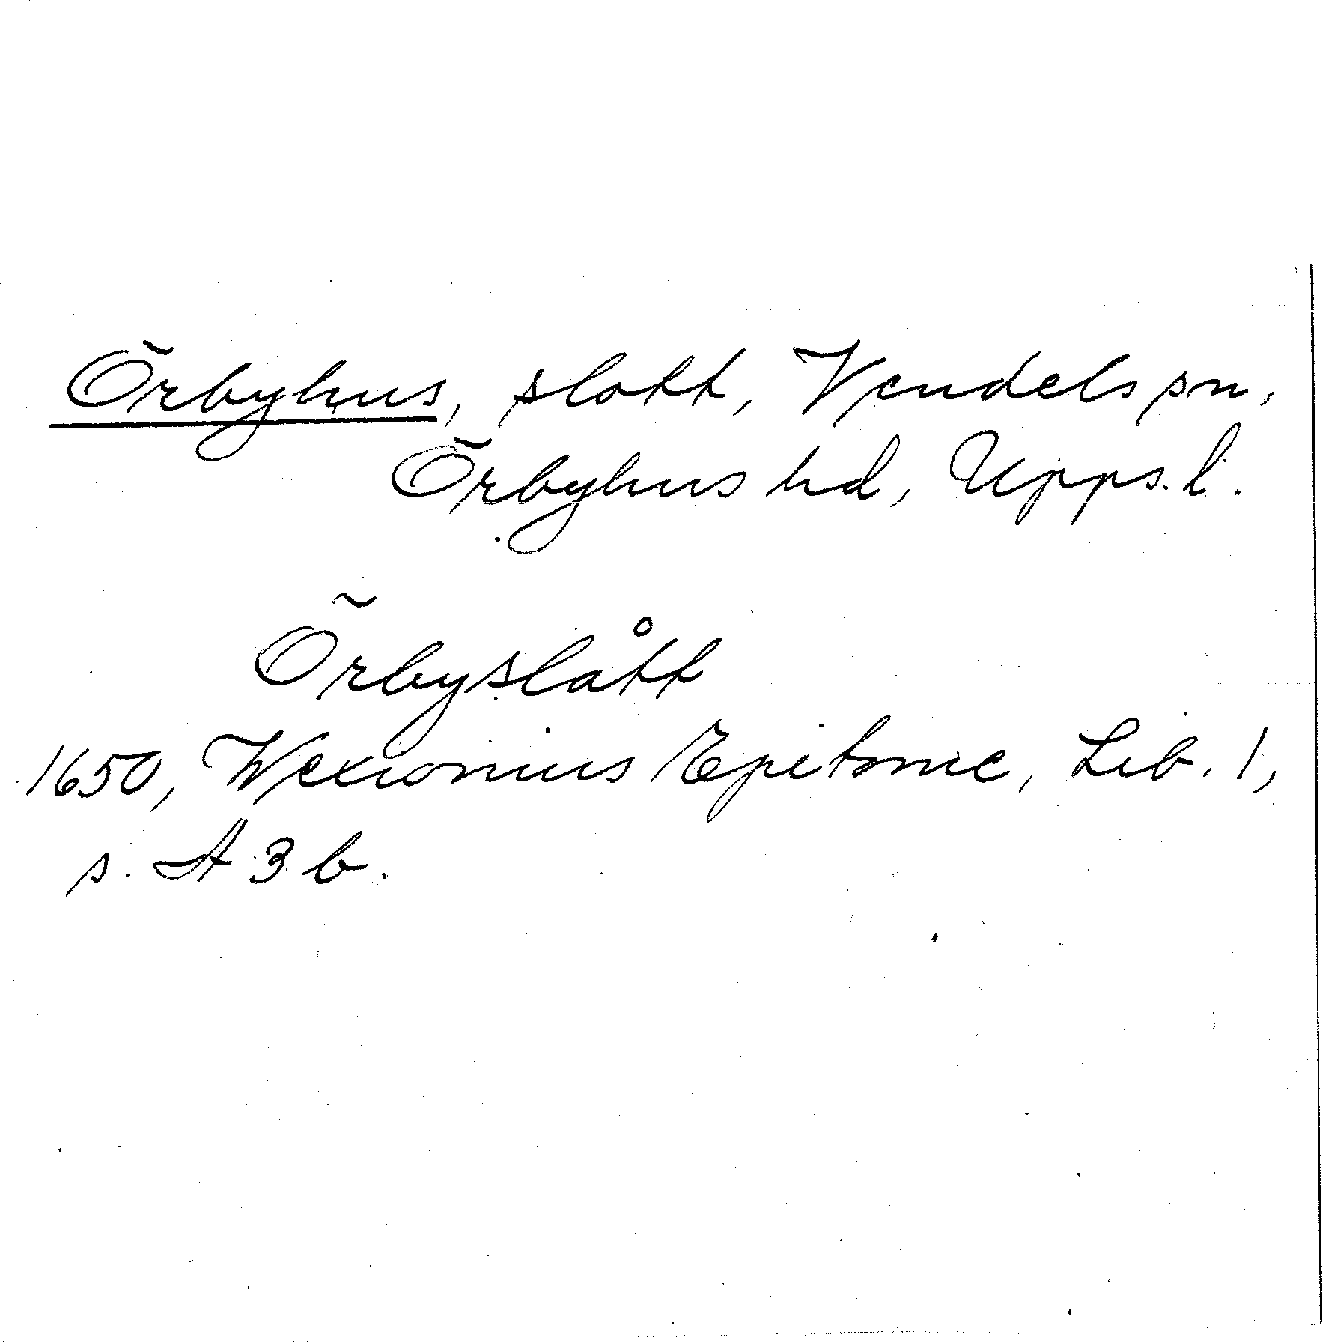 Örbyhus, slott, Vendels sn,
Örbyhus hd, Upps. l.
Örbyslått
1650, Wexionius Epitome, Lib. 1,
s. A 3 b.